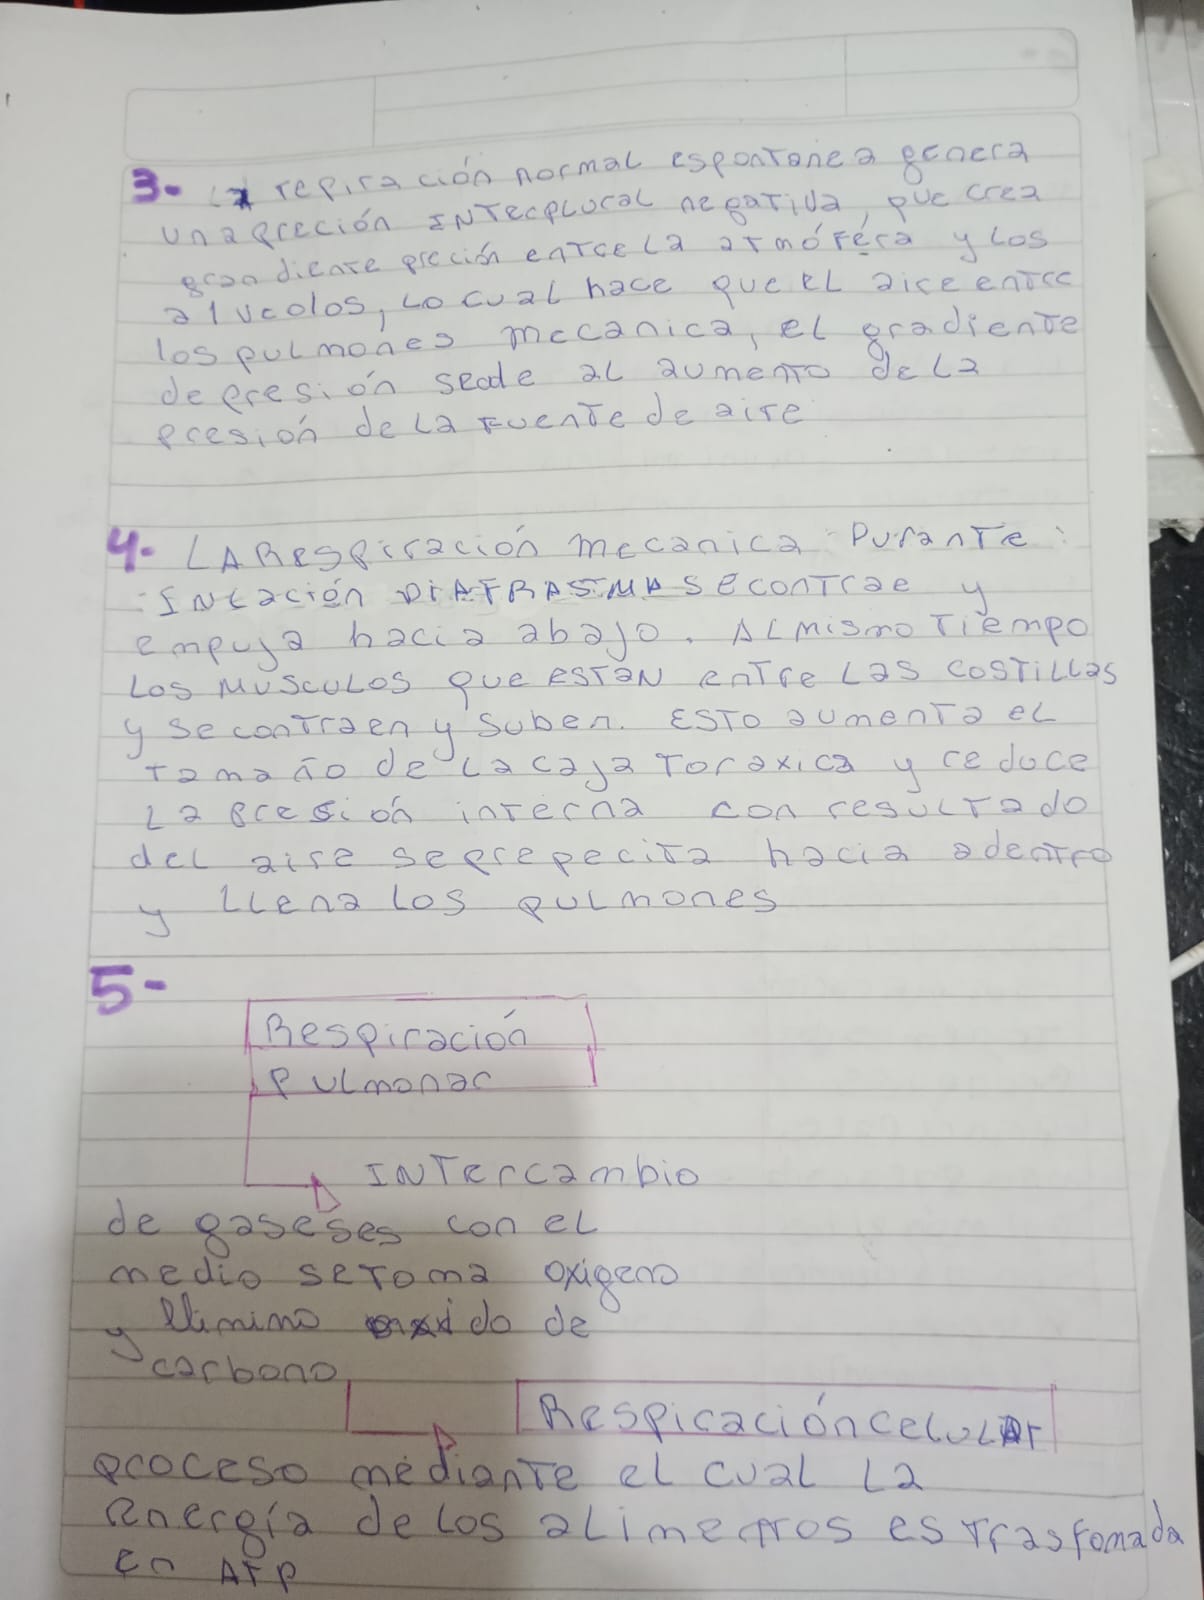 3- La repiración normal espontanea genera
una preción INTerplural negativa, que crea
gran diente preción entre la atmóféra y Los
alveolos, Lo cual hace que el aire entre
los pulmones mecanica, el gradiente
de presión seade al aumento de La
presión de La Fuente de aire
4- LA Respiración mecanica Durante:
INLación DIAFRASMA se contrae y
empuja hacia abajo. AL mismo Tiempo
Los Musculos que ESTAN entre Las cosTiLLas
y se contraen y suben. ESTO aumenta eL
Tamaño de La caja Toraxica y reduce
La presión interna con resultado
del aire seprepecita hacia adentro
y LLena Los pulmones
5-
Respiración
Pulmonar
INTercambio
de gaseses con el
medio se Toma oxigeno
y elimino oxido de
carbono
Respiración celuLAr
proceso mediante el cual La
energía de Los alimentros es Trasfomada
en ATP